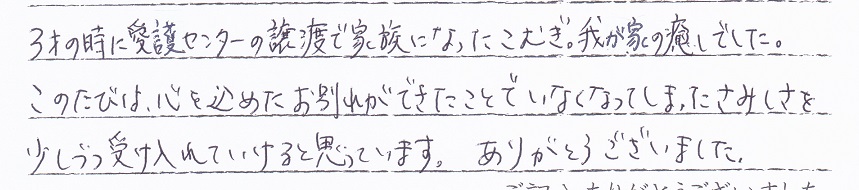 3才の時に愛護センターの譲渡で家族になったこむぎ。我が家の癒しでした。
このたびは、心を込めたお別れができたことでいなくなってしまったさみしさを
少しづつ受け入れていけると思っています。 ありがとうございました。